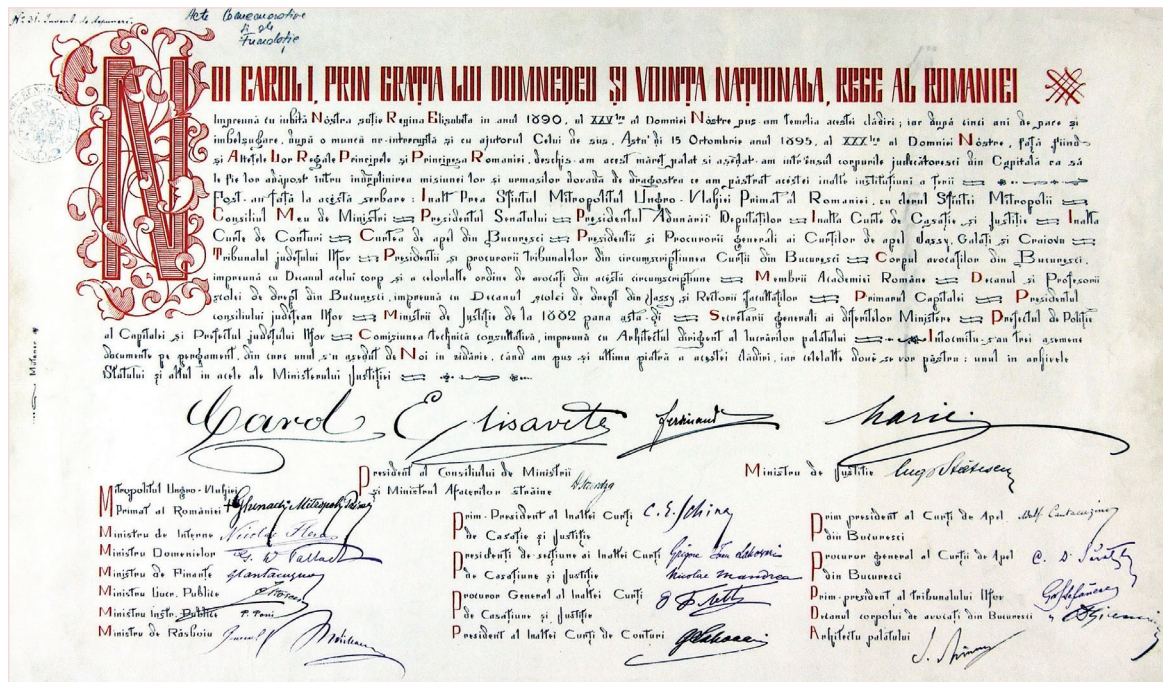 Acte Comemorative
si de
Fundație
NOI CAROL I, PRIN GRAȚIA LUI DUMNEDEU ȘI VOINȚA NAȚIONALA, REGE AL ROMANIEI
Impreună cu iubită Nóstra soție Regina Elisabeta in anul 1890, al XXV lea al Domniei Nóstre pus-am temelia acestei clădiri; iar după cinci ani de pace și
imbelșugare, după o muncă ne-intreruptă și cu ajutorul Celui de sus, Astă-di 15 Octombrie anul 1895, al XXX lea al Domniei Nóstre, față fiind
și Altețele Lor Regale Principele și Principesa Romaniei, deschis-am acest măreț palat si așezat-am intr'ensul corpurile judecătoresci din Capitală ca să
le fie lor adăpost intru indeplinirea misiunei lor și urmasilor dovada de dragostea ce am păstrat acestei inalte instituțiuni a țerii
Fost-au față la acéstă serbare: Inalt Prea Sfintul Mitropolitul Ungro-Vlahiei Primat al Romaniei, cu clerul Sfintei Mitropolii
Consiliul Meu de Ministri Presidentul Senatului Presidentul Adunării Deputaților Inalta Curte de Casație și Justiție Inalta
Curte de Conturi Curtea de apel din Bucuresci Presidentii și Procurorii generali ai Curților de apel Jassy, Galați și Craiova
Tribunalul județului Ilfov Presidentii și procurorii tribunalelor din circumscripțiunea Curții din Bucuresci Corpul avocaților din Bucuresci,
impreună cu Decanul acelui corp și celorlalte ordine de avocați din acéstă circumscripțiune Membrii Academiei Române Decanul și Profesorii
scolei de drept din Bucuresci, impreună cu Decanul scolei de drept din Jassy și Rectorii facultaților Primarul Capitalei Presidentul
consiliului județean Ilfov Ministrii de Justiție de la 1882 pana astă-di Secretarii generali ai diferitelor Ministere Prefectul de Poliție
al Capitalei și Prefectul județului Ilfov Comisiunea technică consultativă, impreună cu Arhitectul dirigent al lucrărilor palatului Intocmitu-s'au trei asemene
documente pe pergament, din cari unul s'a așezat de Noi in zidărie, când am pus și ultima piatră a acestei clădiri, iar celelalte două se vor păstra: unul in arhivele
Statului și altul in acele ale Ministerului Justiției
Carol Elisaveta Ferdinand Marie
President al Consiliului de Ministrii
și Ministrul Afacerilor străine DSturdza
Ministru de Justiție Eugo Stătescu
Mitropolitul Ungro-Vlahiei
Primat al României
Ministru de Interne Nicolae Fleva
Ministru Domenielor
Ministru de Finanțe GCantacuzino
Ministru Lucr. Publice
Ministru Instr. Publice P. Poni
Ministru de Răsboiu
Prim-President al Inaltei Curți C. E. Schina
de Casație și Justiție
Președinți de secțiune ai Inaltei Curți
de Casațiune și Justiție Nicolae Mandrea
Procuror General al Inaltei Curți
de Casațiune și Justiție
President al Inaltei Curți de Conturi
Prim president al Curții de Apel Cantacuzino
din Bucuresci
Procuror general al Curții de Apel
din Bucuresci
Prim-president al tribunalului Ilfov
Decanul corpului de avocați din Bucuresci
Arhitectu palatului